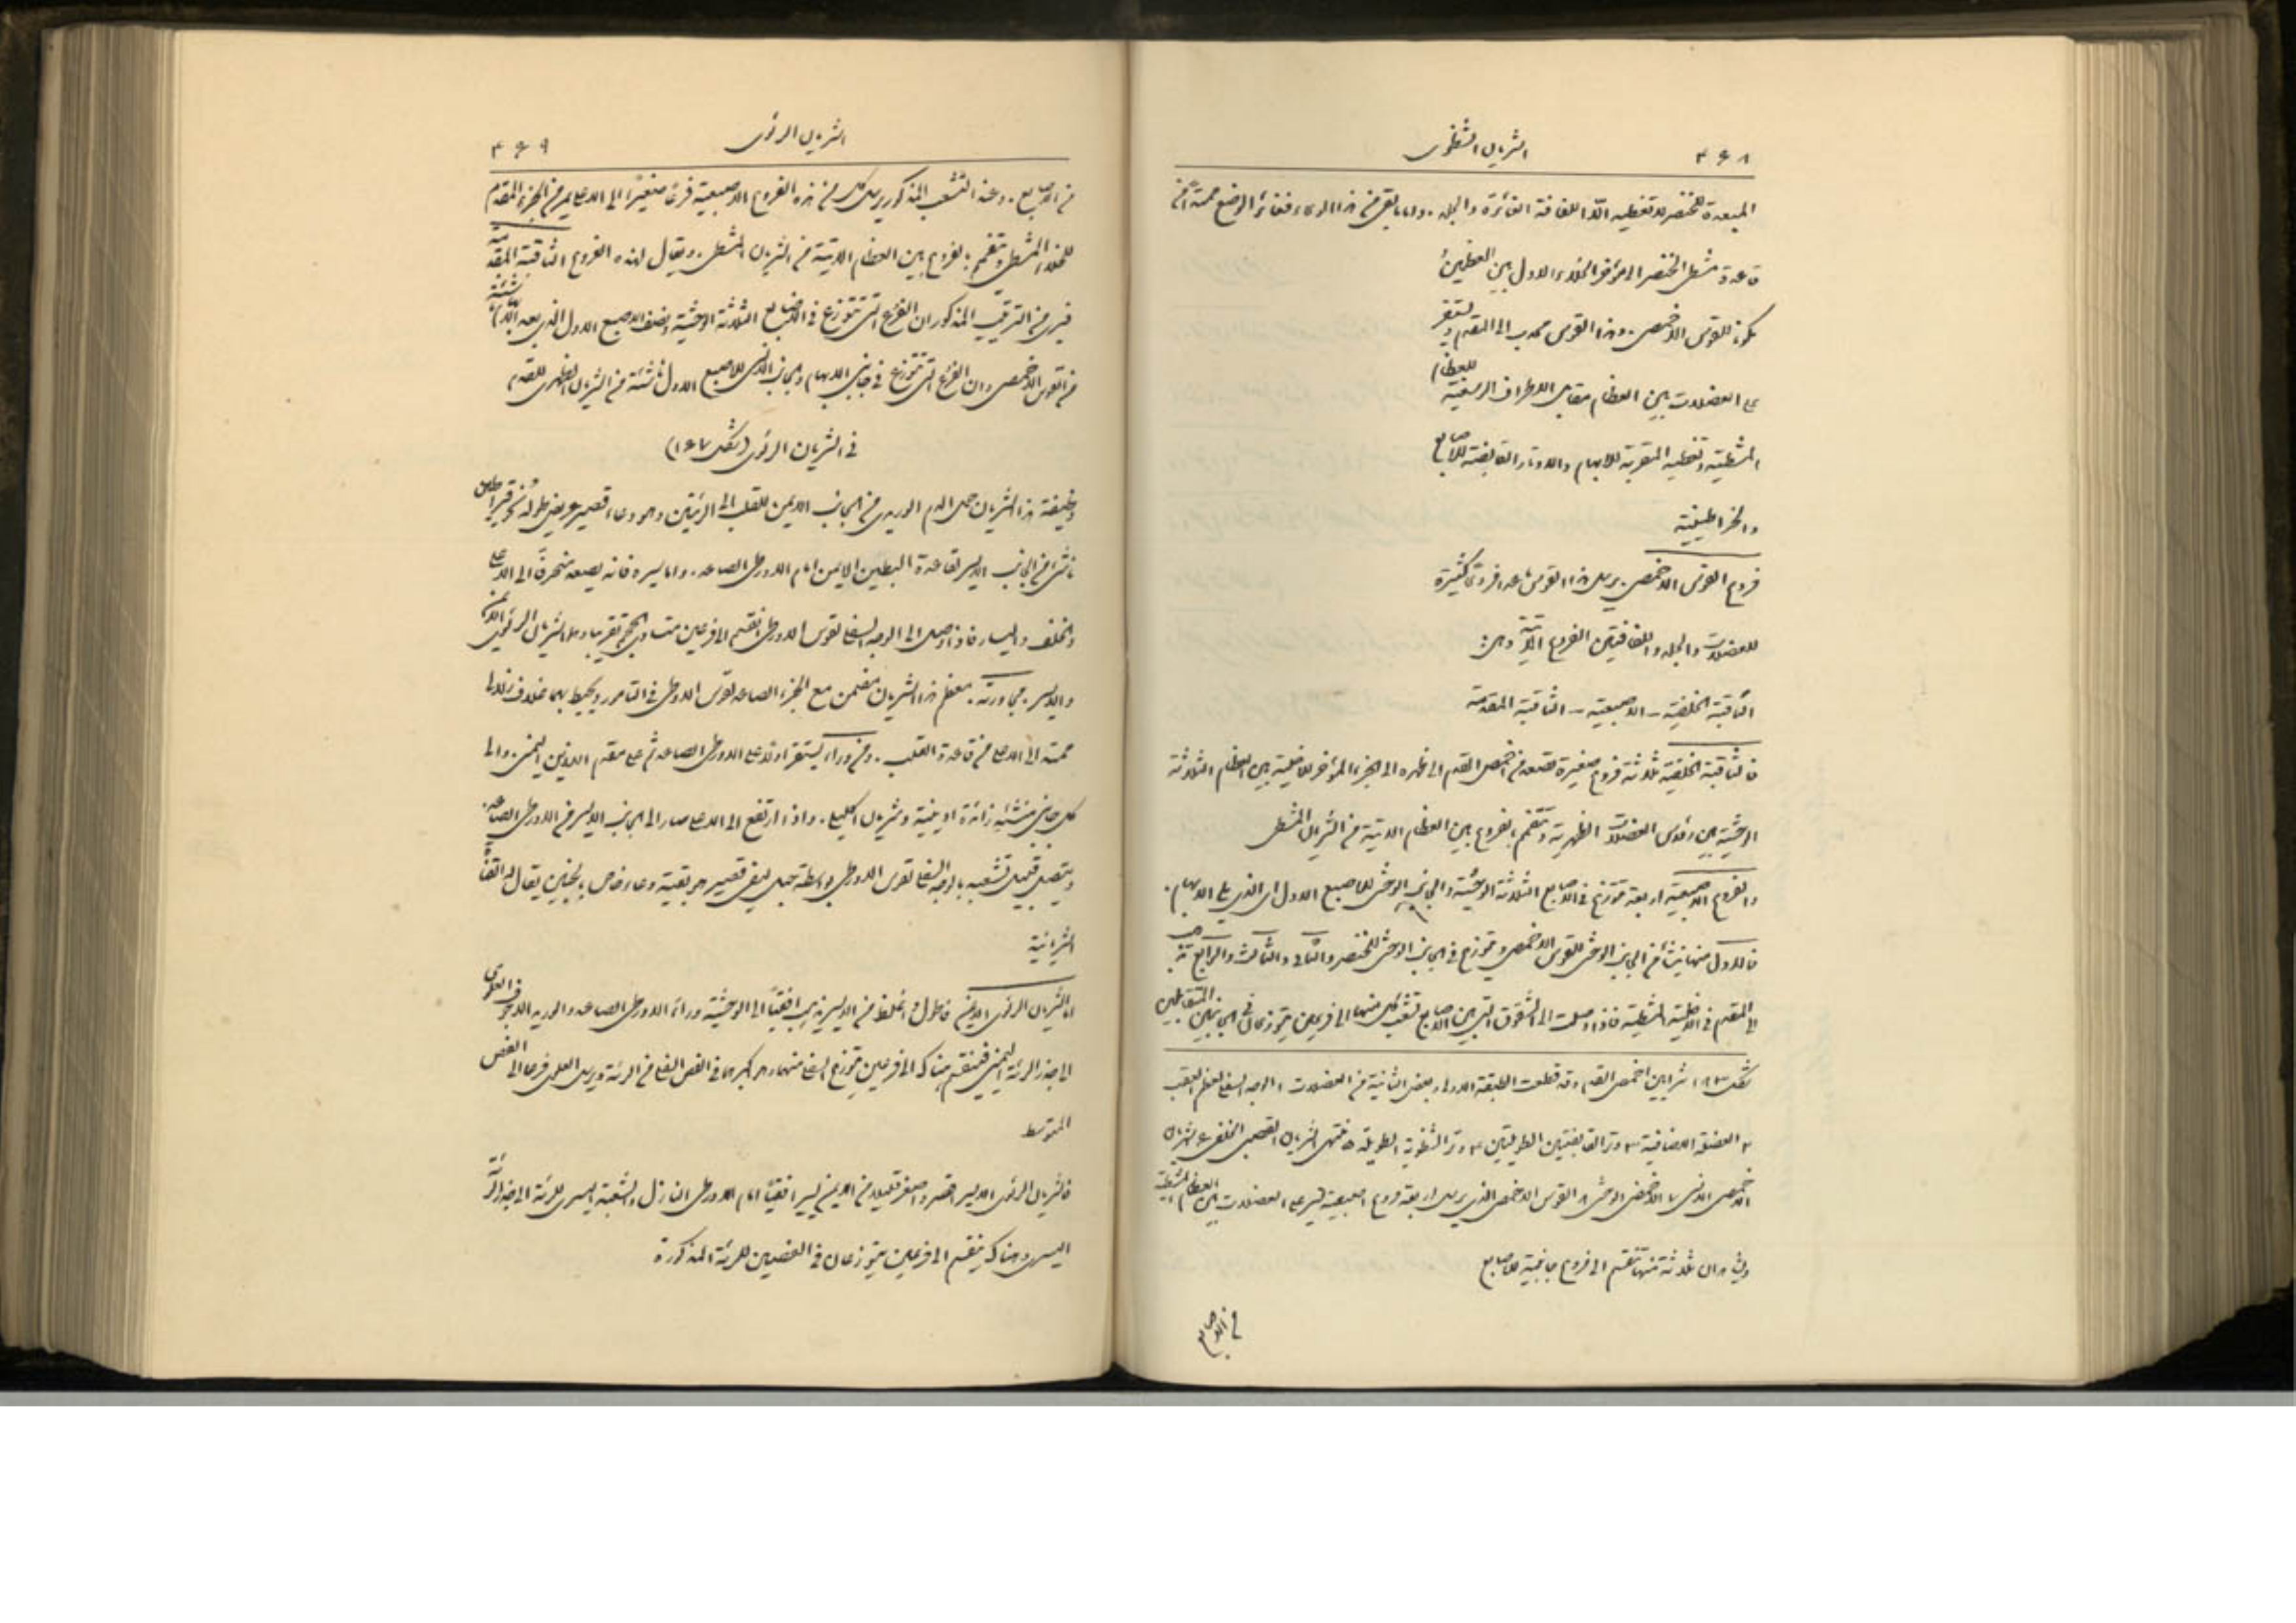 ٤٦٨ الشريان الشظوي
المبعدة للخنصر لا تغطيه الا اللفافة الغائرة والجلد. واما ما بقي من هذا الوعاء فغائر الوضع ممتد من
قاعدة مشط الخنصر الى مؤخر الخلاء الاول بين العظمين
مكونا للقوس الاخمصي. وهذا القوس محدب الى المقدم ويستقر
على العضلات بين العظام مقابل الاطراف الرسغية للعظام
المشطية وتغطيه المقربة للابهام والاوتار القابضة للاصابع
والخراطينية
فروع القوس الاخمصي. يرسل هذا القوس ما عدا فروعًا كثيرة
للعضلات والجلد واللفافتين الفروع الآتية وهي:
الثاقبة الخلفية – الاصبعية – الثاقبة المقدمة
فالثاقبة الخلفية ثلاثة فروع صغيرة تصعد من اخمص القدم الى ظهره الى الجزء المؤخر للاخلية بين العظام الثلاثة
الوحشية بين رؤوس العضلات الظهرية وتتفمم بفروع بين العظام الاتية من الشريان المشطي
والفروع الاصبعية اربعة تتوزع في الاصابع الثلاثة الوحشية والجانب الوحشي للاصبع الاول اي الذي يلي الابهام.
فالاول منها ينشأ من الجانب الوحشي للقوس الاخمصي ويتوزع في الجانب الوحشي للخنصر والثاني والثالث والرابع تذهب
الى المقدم في الاخلية المشطية فاذا وصلت الى الشقوق التي بين الاصابع تشعب كل منها الى فرعين يتوزعان في الجانبين المتقابلين
شكل ١٨٣ شرايين اخمص القدم وقد قطعت الطبقة الاولى وبعض الثانية من العضلات ١ الوجه السفلي لعظم العقب
٢ العضلة الاضافية ٣ وتر القابضتين الطويلتين ٤ وتر الشظوية الطويلة ٥ منتهى الشريان القصبي الخلفي ٦ الشريان
الاخمصي الانسي ٧ الاخمصي الوحشي ٨ القوس الاخمصي الذي يرسل اربعة فروع اصبعية تسير على العضلات بين العظام المشطية
ويشاهد ان ثلاثة منها تنقسم الى فروع جانبية للاصابع
من الاصابع
الشريان الرئوي ٤٦٩
من الاصابع. وعند التشعب المذكور يرسل كل من هذه الفروع الاصبعية فرعًا صغيرًا الى الاعلى يمر من الجزء المقدم
للخلاء المشطي ويتفمم بفروع بين العظام الاتية من الشريان المشطي. ويقال لهذه الفروع الثاقبة المقدمة
فيرى من الترتيب المذكور ان الفروع التي تتوزع في الاصابع الثلاثة الوحشية ونصف الاصبع الاول الذي بعد الابهام ناشئة
من القوس الاخمصي وان الفروع التي تتوزع في جانبي الابهام والجانب الانسي للاصبع الاول ناشئة من الشريان الظهري للقدم
في الشريان الرئوي (شكل ١٦٧)
وظيفة هذا الشريان حمل الدم الوريدي من الجانب الايمن للقلب الى الرئتين وهو وعاء قصير عريض طوله نحو قيراطين
ناشئ من الجانب الايسر لقاعدة البطين الايمن امام الاورطي الصاعد. واما سيره فانه يصعد منحرفًا الى الاعلى
والخلف واليسار فاذا وصل الى الوجه السفلي لقوس الاورطي انقسم الى فرعين متساوي الحجم تقريبا وهما الشريان الرئوي الايمن
والايسر. مجاورته. معظم هذا الشريان مضمن مع الجزء الصاعد لقوس الاورطي في التامور ويحيط بهما غلاف زلالي
ممتد الى الاعلى من قاعدة القلب. ومن ورائه يستقر اولا على الاورطي الصاعد ثم على مقدم الاذين اليمنى. والى
كل جانب منشئه زائدة اذينية وشريان اكليلي. واذا ارتفع الى الاعلى صار الى الجانب الايسر من الاورطي الصاعد.
ويتصل قبل تشعبه بالوجه السفلي لقوس الاورطي بواسطة حبل ليفي قصير هو بقية وعاء خاص بالجنين يقال له القناة
الشريانية
اما الشريان الرئوي الايمن فاطول واغلظ من الايسر يذهب افقيًا الى الوحشية وراء الاورطي الصاعد والوريد الاجوف العلوي
الى جذر الرئة اليمنى فينقسم هناك الى فرعين يتوزع السفلي منهما وهو اكبرهما في الفص السفلي من الرئة ويرسل العلوي فرعا الى الفص
المتوسط
فالشريان الرئوي الايسر اقصر واصغر قليلا من الايمن يسير افقيًا امام الاورطي النازل والشعبة اليسرى للرئة الى جذر الرئة
اليسرى وهناك ينقسم الى فرعين يتوزعان في الفصين للرئة المذكورة